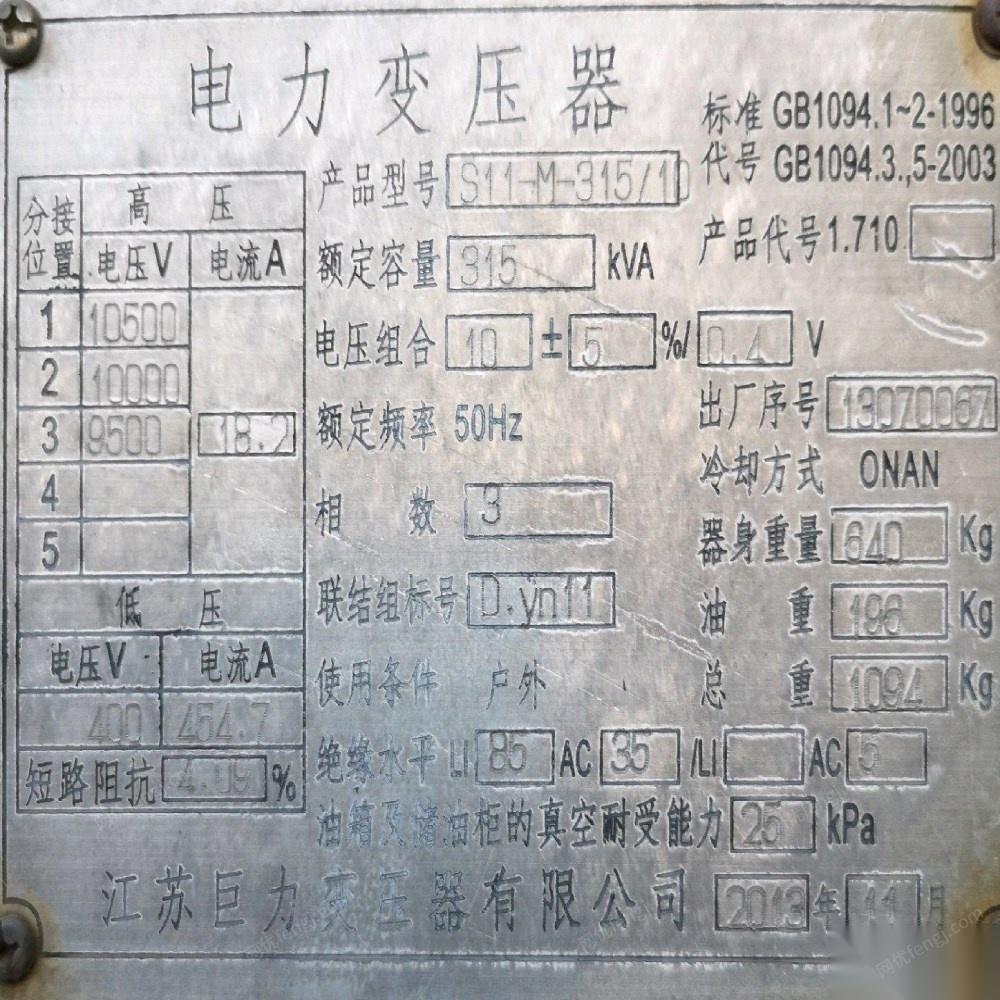 电力变压器
标准 GB1094.1~2-1996
代号 GB1094.3.,5-2003
产品型号 S11-M-315/10
产品代号1.710
额定容量 315 kVA
电压组合 10 ± 5 %/ 0.4 V
出厂序号 13070067
额定频率 50Hz
冷却方式 ONAN
相 数 3
器身重量 640 Kg
联结组标号 D.yn11
油 重 196 Kg
使用条件 户外
总 重 1094 Kg
绝缘水平 LI 85 AC 35 /LI AC 5
油箱及储油柜的真空耐受能力 25 kPa
分接位置 高 压
电压V 电流A
1 10500
2 10000
3 9500 18.2
4
5
低 压
电压V 电流A
400 454.7
短路阻抗 4.09 %
江苏巨力变压器有限公司 2013 年 11 月
网优fengj.com